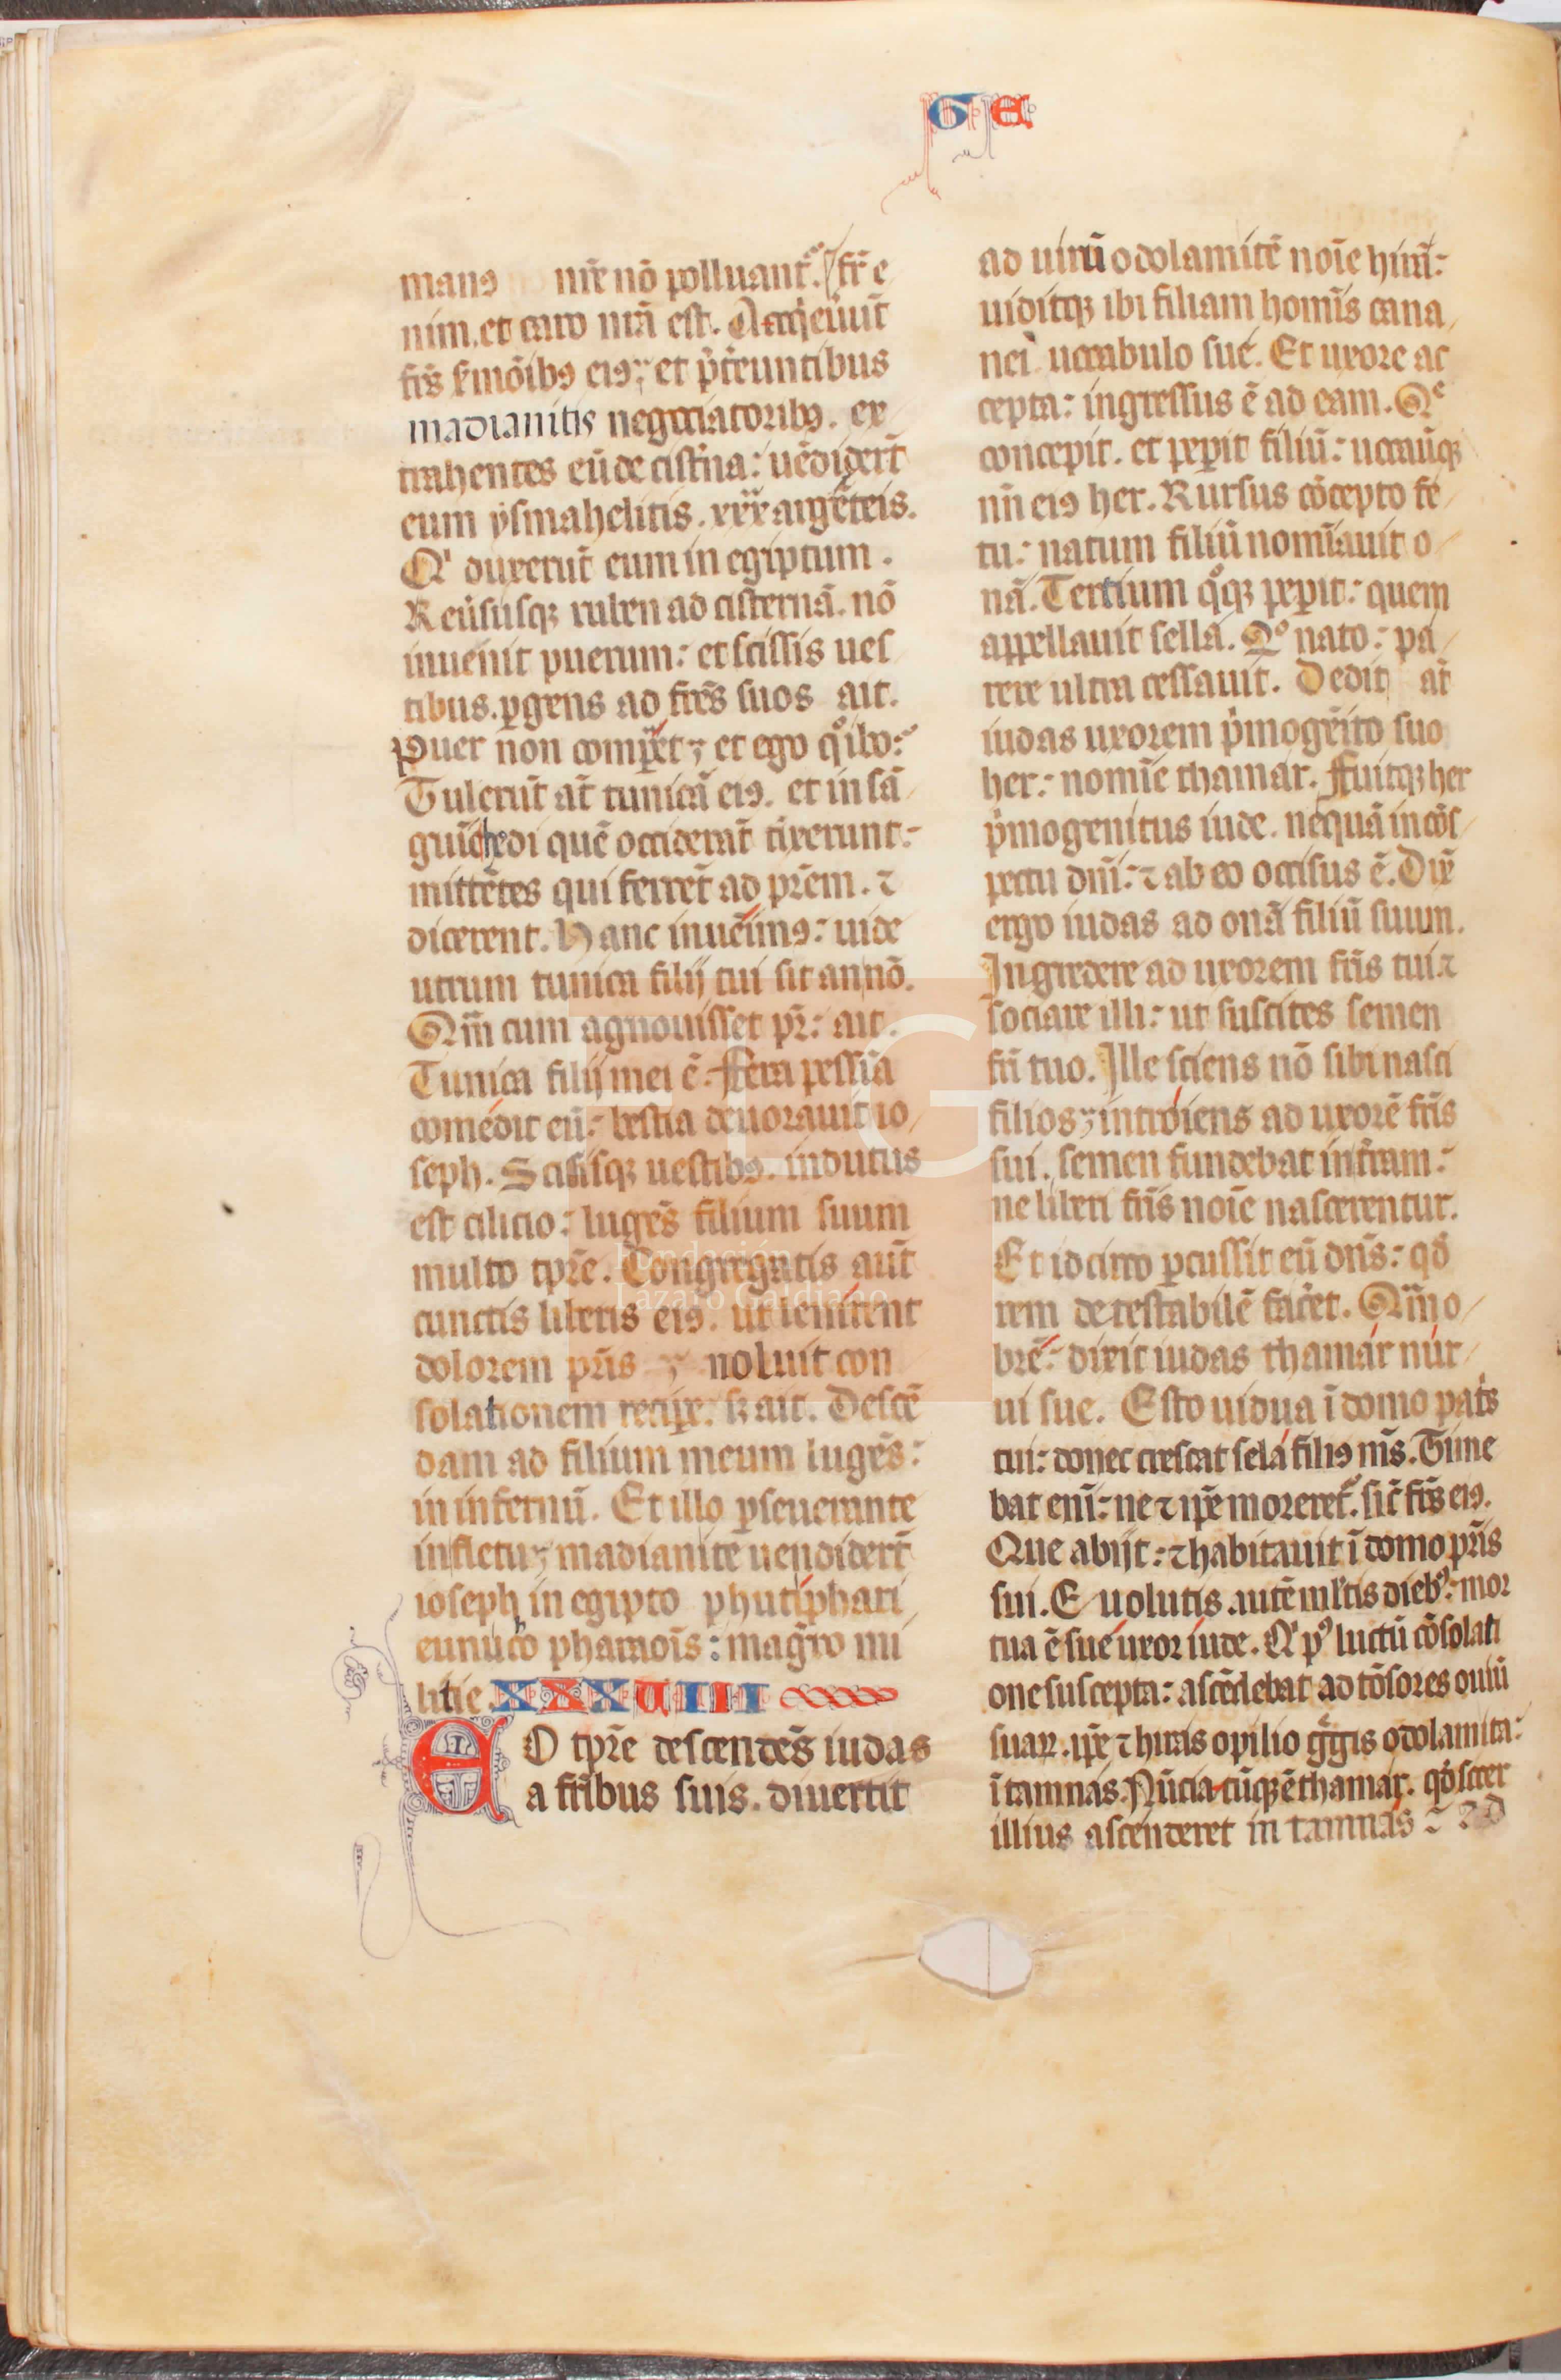 G E
manꝰ nr̄e nō polluant᷑. fr̄ e
nim. et caro nr̄a est. Acq̇euūt
fr̄s ẜmōibꝰ eiꝰ; et p̄t̄euntibus
madianitis negociatoribꝰ. ex
trahentes eū de cist̄na: uēdider̄t
eum ysmahelitis. xxx argēteis.
Qͥ duxerūt eum in egiptum.
Reūsusqꝫ ruben ad cisternā. nō
inuenit puerum: et scissis ues
tibus. ꝑgens ad fr̄es suos ait.
Puer non comꝑet; et ego qͦ ibo:
Tulerūt aūt tunicā eiꝰ. et in sā
guīe hedi quē occiderāt tīxerunt:
mittētes qui ferrēt ad pr̄em. ⁊
dicerent. Hanc inuēimꝰ: uide
utrum tunica filij tui sit an nō.
Qm̄ cum agnouisset pr̄: ait.
Tunica filij mei ē. Fera pessīa
comedit eū: bestia deuorauit io
seph. Scissisqꝫ uestibꝰ. indutus
est cilicio: lugēs filium suum
multo tp̄re. Congregatis aūt
cunctis liberis eiꝰ. ut lenirent
dolorem pr̄is ; noluit con
solationem reciꝑe: sꝫ ait. Descē
dam ad filium meum lugēs:
in infernū. Et illo ꝑseuerante
in fletu; madianite uendider̄t
ioseph in egipto phutiphari
eunucho pharaoīs: magr̄o mi
litie XXXUIII
EO tp̄re descendēs iudas
a fr̄ibus suis. diuertit
ad uirū odolamitē noīe hirā:
uiditqꝫ ibi filiam homīs cana
nei uocabulo sue. Et uxore ac
cepta: ingressus ē ad eam. Qᵉ
concepit. et peꝑit filiū: uocauitqꝫ
nn̄ eiꝰ her. Rursus cōcepto fe
tu: natum filiū nomīauit o
nā. Tertium qͦqꝫ peꝑit: quem
appellauit sella. Qͦ nato: pa
rere ultra cessauit. Dedit aūt
iudas uxorem pͥmogēito suo
her: nomīe thamar. Fuitqꝫ her
pͥmogenitus iude. nequā in cōs
pectu dn̄i: ⁊ ab eo occisus ē. Dix̄
ergo iudas ad onā filiū suum.
Ingredere ad uxorem fr̄is tui ⁊
sociare illi: ut suscites semen
fr̄i tuo. Ille sciens nō sibi nasci
filios; introiens ad uxorē fr̄is
sui. semen fundebat in t̄ram:
ne liberi fr̄is noīe nascerentur.
Et idcirco ꝑcussit eū dn̄s: qd̓
rem detestabilē fac̄et. Qm̄ o
brē: dixit iudas thamar nur
ui sue. Esto uidua ī domo patͥs
tui: donec crescat sela filiꝰ mīs. Time
bat enī: ne ⁊ ip̄e moreret᷑. sic̄ fr̄s eiꝰ.
Que abijt: ⁊ habitauit ī domo pr̄is
sui. Euolutis autē ml̄tis diebꝰ: mor
tua ē sue uxor iude. Qͥ pꝰ luctū cōsolati
one suscepta: ascēdebat ad tōsores ouiū
suaꝝ. ip̄e ⁊ hiras opilio gͤgis odolamita:
ī tamnas. Nūciatūqꝫ ē thamar. qd̓ socer
illius ascenderet in tamnas